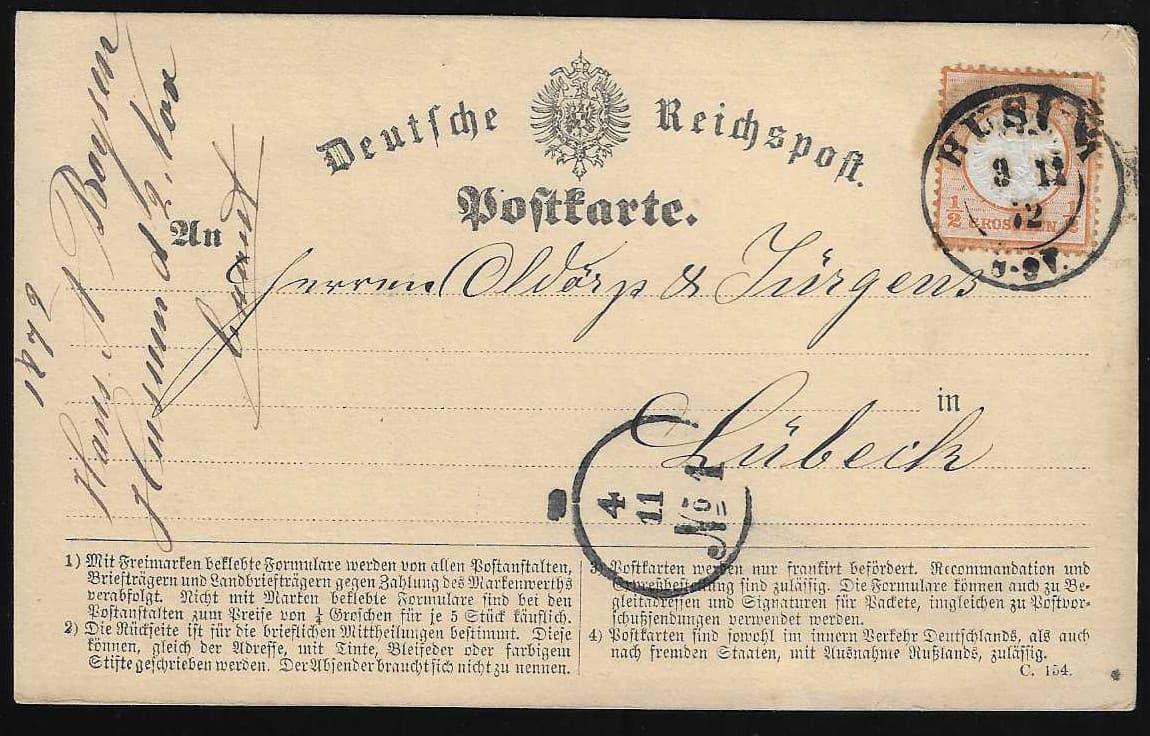 Deutsche Reichspost.
Postkarte.
HUSUM
3 11
72
8-9V.
1/2 GROSCHEN 1/2
An
Herren Oldörp & Jürgens
in
Lübeck
4
11
No 1
1872
Hans A Boysen
Husum d 2. Nov
1) Mit Freimarken beklebte Formulare werden von allen Postanstalten,
Briefträgern und Landbriefträgern gegen Zahlung des Markenwerths
verabfolgt. Nicht mit Marken beklebte Formulare sind bei den
Postanstalten zum Preise von ¼ Groschen für je 5 Stück käuflich.
2) Die Rückseite ist für die brieflichen Mittheilungen bestimmt. Diese
können, gleich der Adresse, mit Tinte, Bleifeder oder farbigem
Stifte geschrieben werden. Der Absender braucht sich nicht zu nennen.
3) Postkarten werden nur frankirt befördert. Recommandation und
Expreßbestellung sind zulässig. Die Formulare können auch zu Be-
gleitadressen und Signaturen für Packete, imgleichen zu Postvor-
schußsendungen verwendet werden.
4) Postkarten sind sowohl im innern Verkehr Deutschlands, als auch
nach fremden Staaten, mit Ausnahme Rußlands, zulässig.
C. 154.